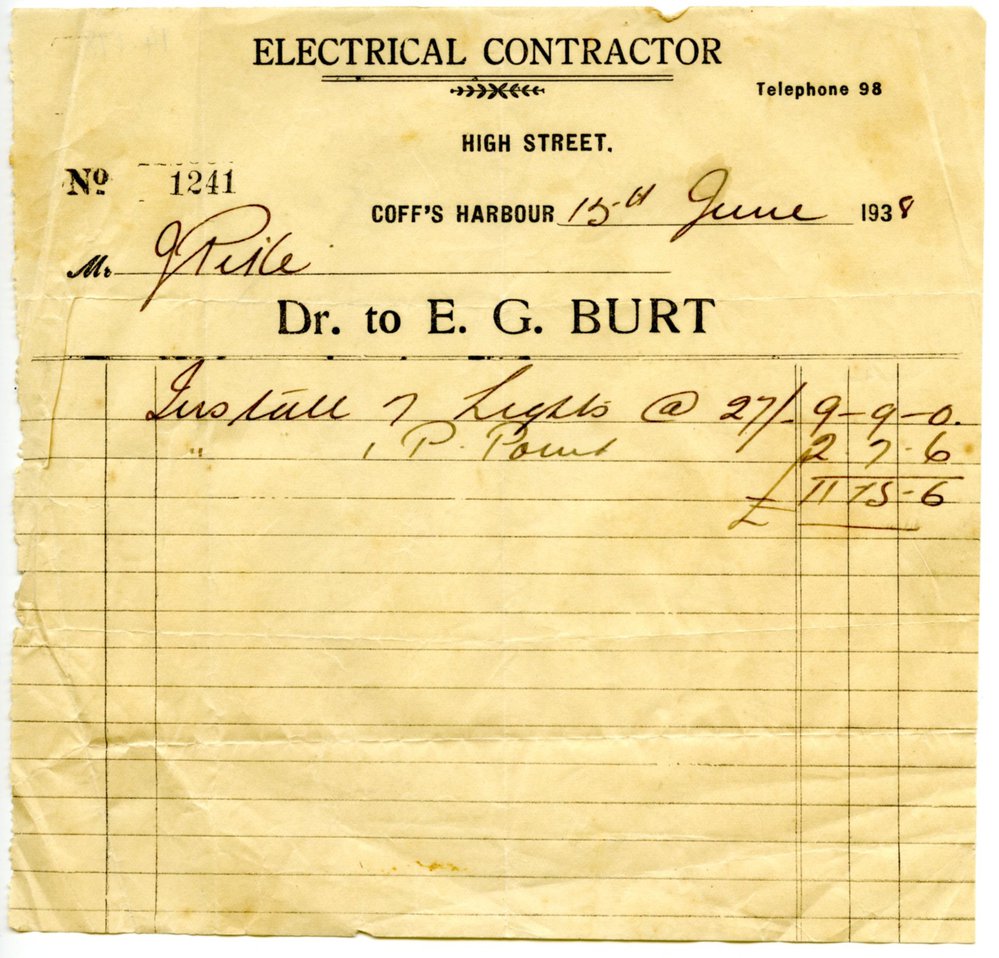 ELECTRICAL CONTRACTOR
Telephone 98
HIGH STREET.
No 1241
COFF'S HARBOUR 15th June 1938
Mr J Pike
Dr. to E. G. BURT
Install 7 Lights @ 27/- 9-9-0.
" 1 P. Point 2-7-6
£ 11 15-6